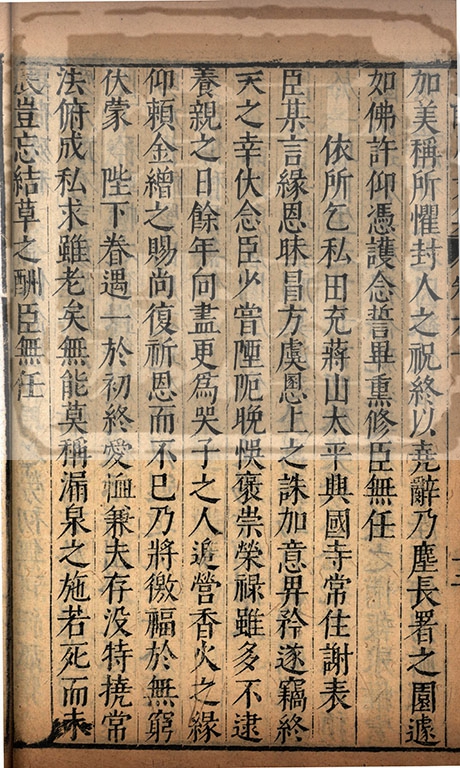 加美稱所懼封人之祝終以堯辭乃塵長者之園遽
如佛許仰憑護念誓畢熏修臣無任
依所乞私田充蔣山太平興國寺常住謝表
臣某言緣恩昧冒方虞慁上之誅加意畀矜遂竊終
天之幸伏念臣少嘗陻阨晚悞褒崇榮祿雖多不逮
養親之日餘年向盡更爲哭子之人追營香火之緣
仰賴金繒之賜尚復祈恩而不已乃將徼福於無窮
伏蒙 陛下眷遇一於初終愛䘏兼夫存没特撓常
法俯成私求雖老矣無能莫稱漏泉之施若死而未
豈忘結草之酬臣無任